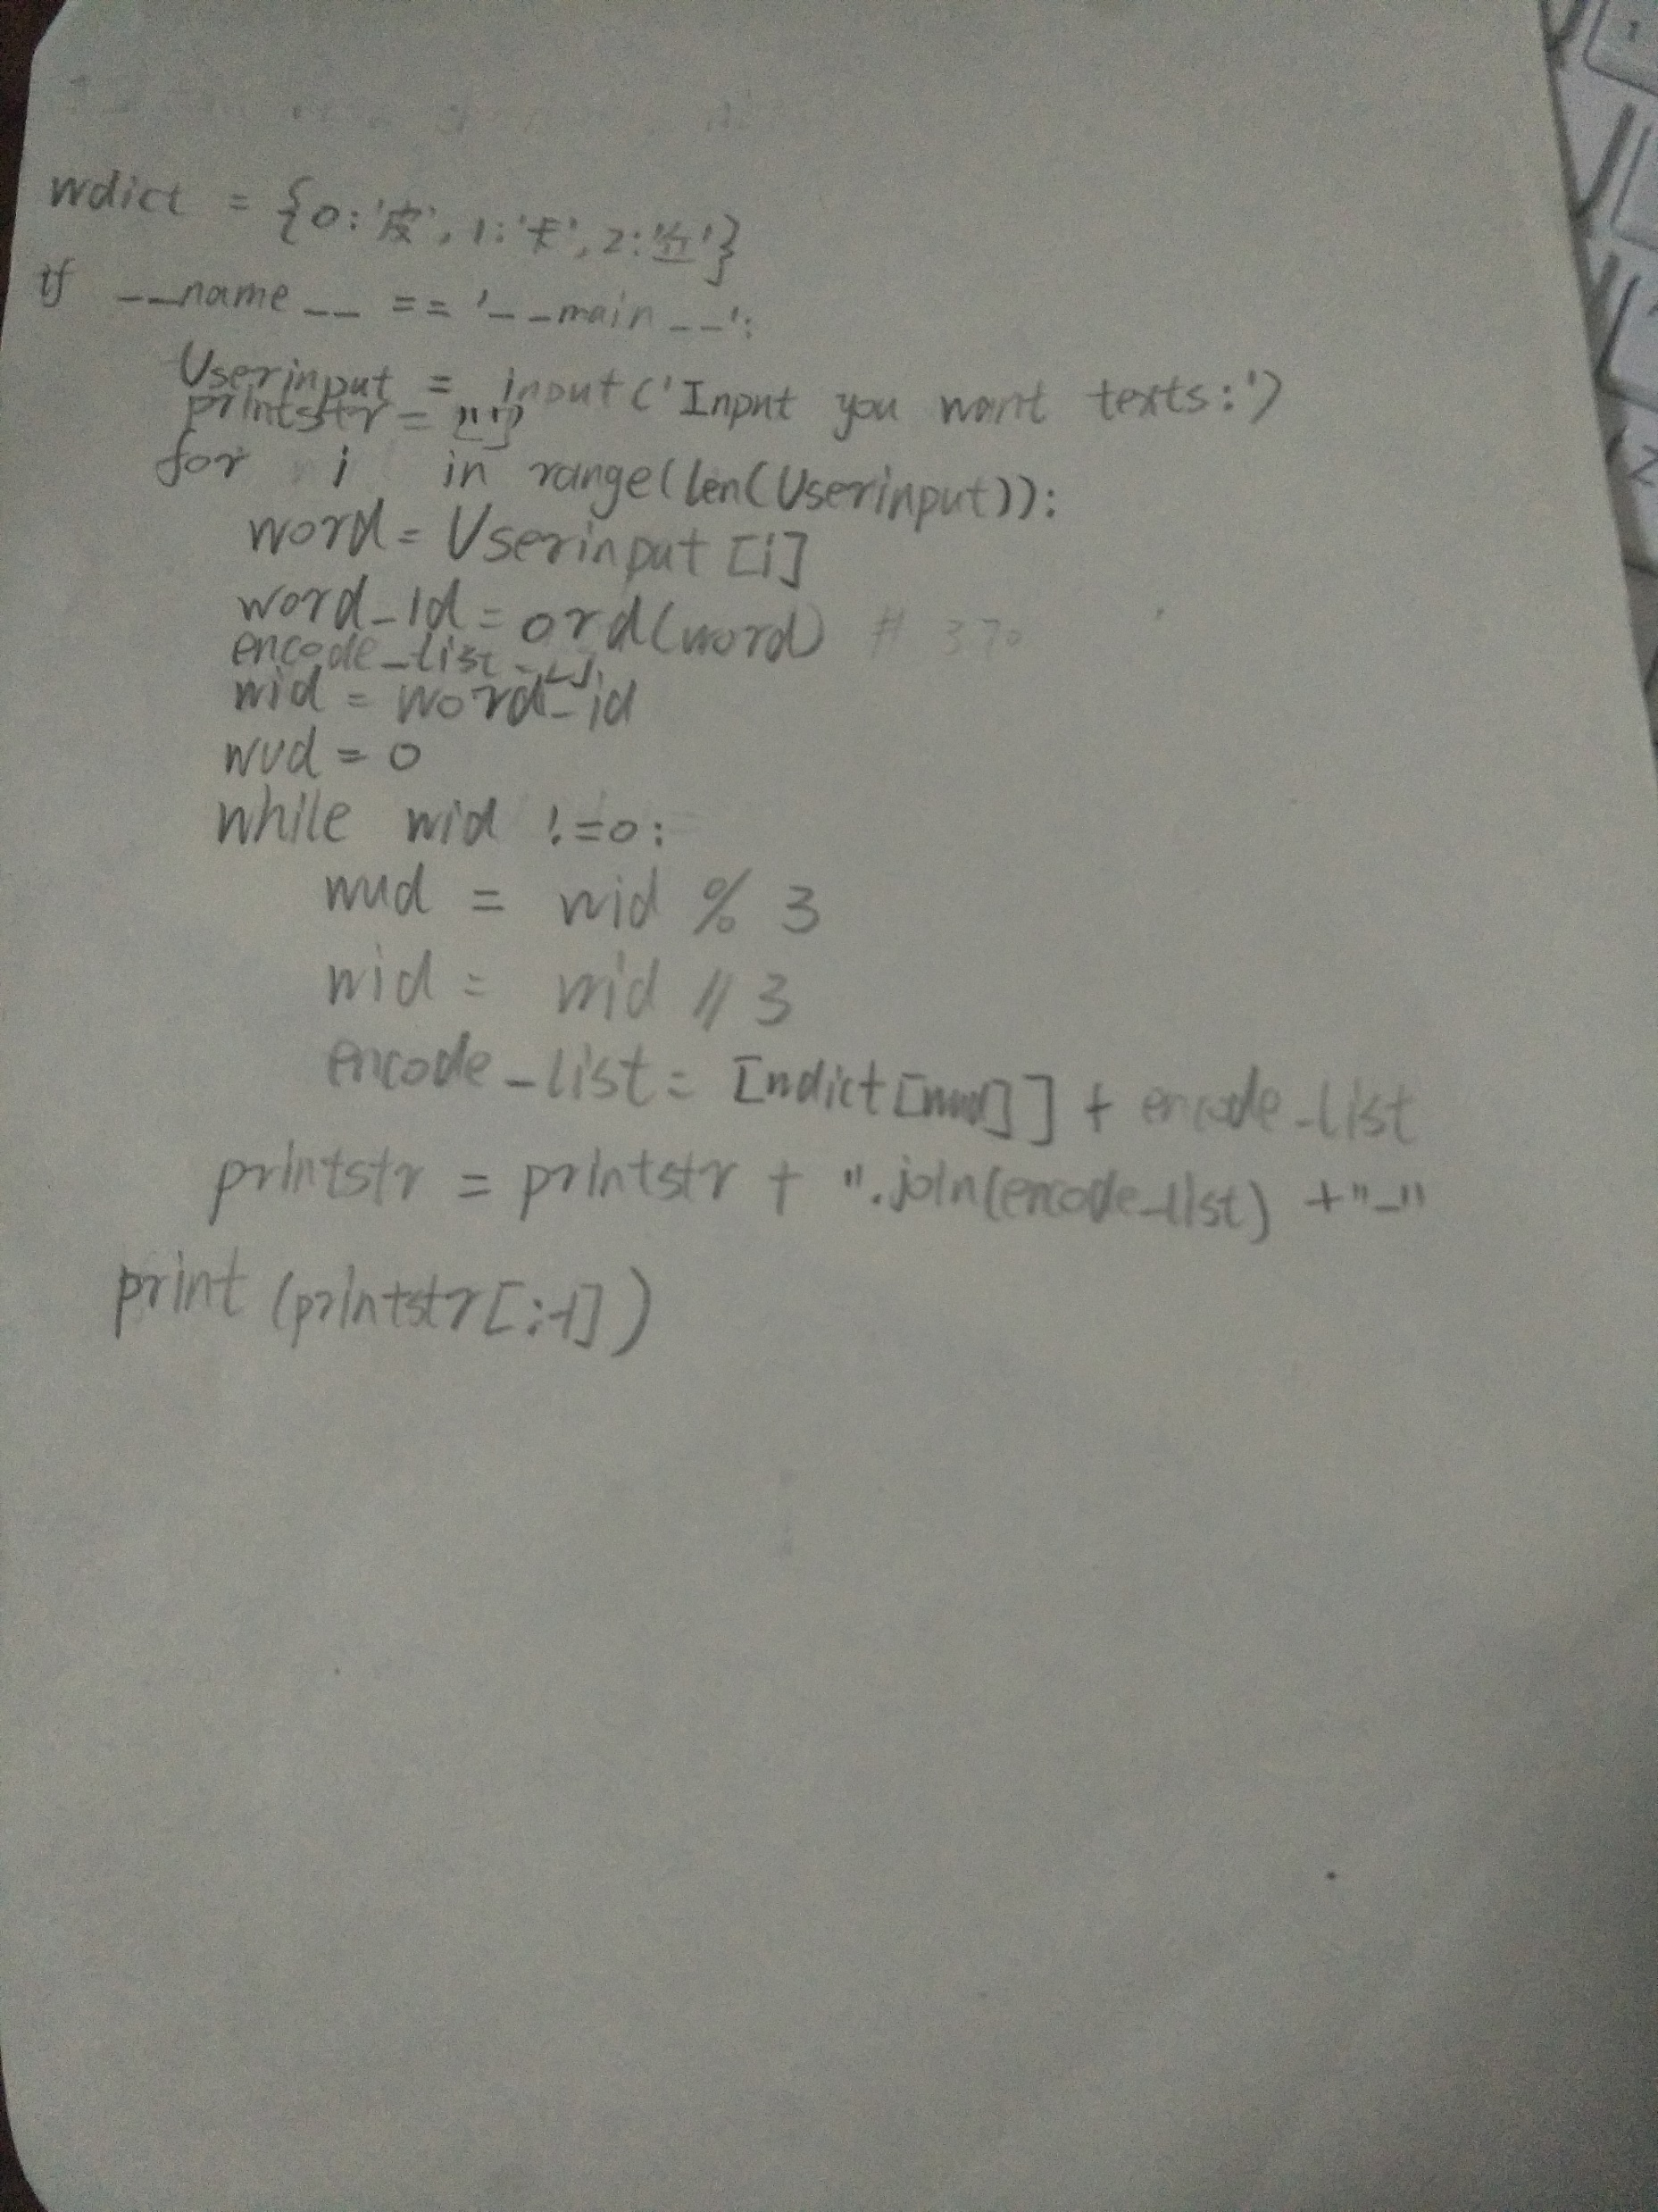 wdict = {0:'皮', 1:'卡', 2:'丘'}
if __name__ == '__main__':
Userinput = input('Input you want texts:')
printstr = [""]
for i in range(len(Userinput)):
word = Userinput[i]
word_id = ord(word) # 370
encode_list = [];
wid = word_id
wud = 0
while wid !=0:
wud = wid % 3
wid = wid // 3
encode_list = [wdict[wud]] + encode_list
printstr = printstr + ''.join(encode_list) + "-"
print (printstr[:-1])